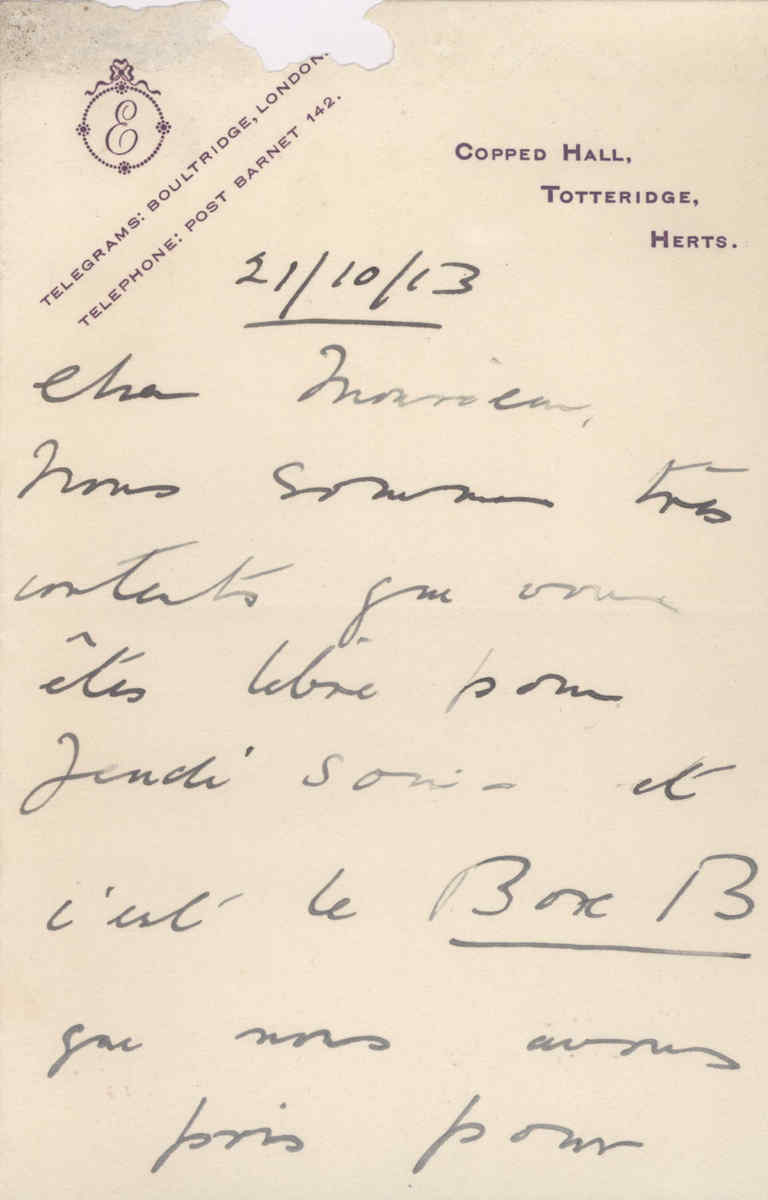 E
TELEGRAMS: BOULTRIDGE, LONDON.
TELEPHONE: POST BARNET 142.
COPPED HALL,
TOTTERIDGE,
HERTS.
21/10/13
Cher Monsieur,
Nous sommes très
contents que vous
êtes libre pour
Jeudi soir - et
c'est le Box B
que nous avons
pris pour